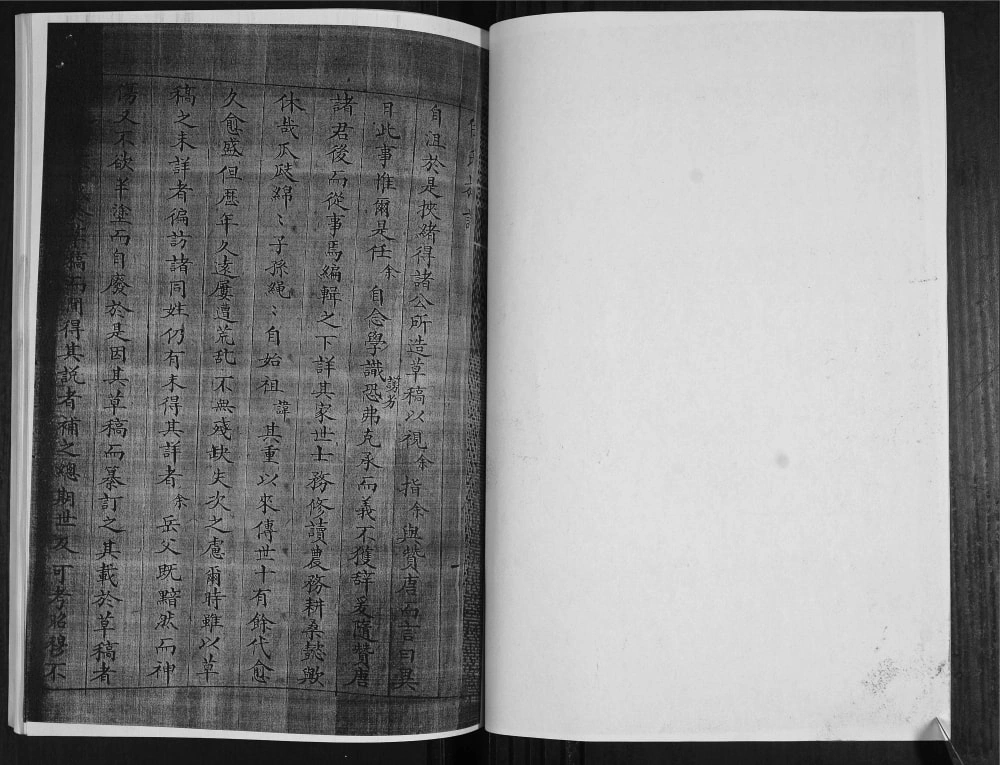 自沮於是挾緒得諸公所造草稿以視余指余與贊唐而言曰異
日此事惟爾是任余自念學識謭劣恐弗克承而義不獲辭爰隨贊唐
諸君後而從事焉編輯之下詳其家世士務修讀農務耕桑懿歟
休哉瓜瓞綿〻子孫繩〻自始祖諱其重以來傳世十有餘代愈
久愈盛但歷年久遠屢遭荒乱不無殘缺失次之慮爾時雖以草
稿之未詳者徧訪諸同姓仍有未得其詳者余岳父既黯然而神
傷又不欲半塗而自廢於是因其草稿而纂訂之其載於草稿者
稿而間得其説者補之總期世及可考昭穆不